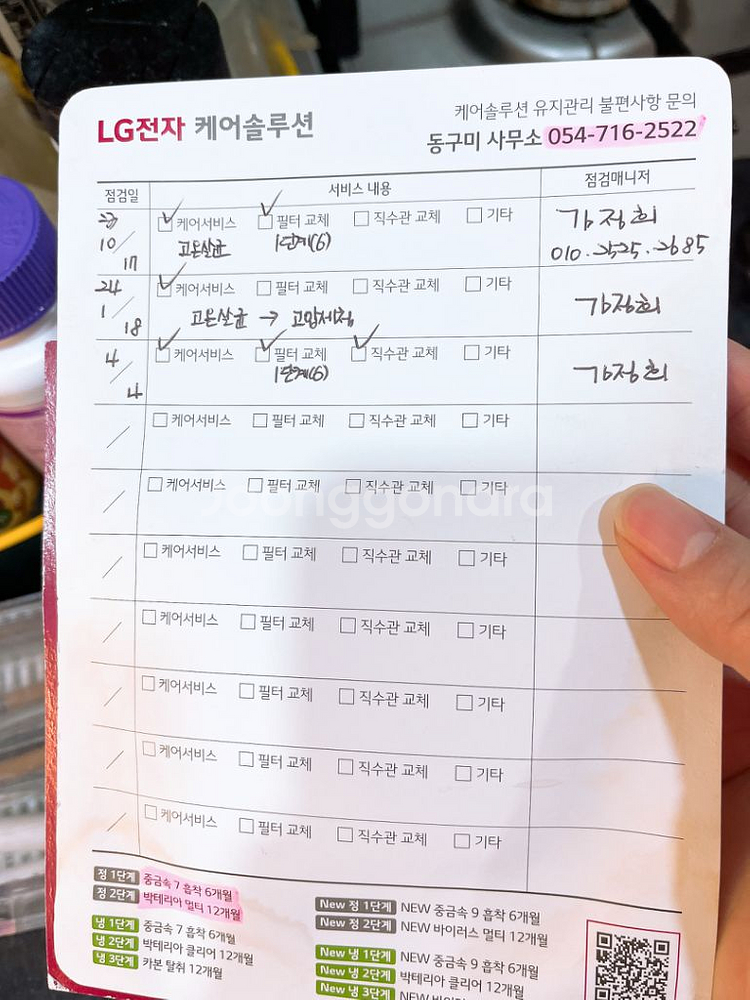 LG전자 케어솔루션
케어솔루션 유지관리 불편사항 문의
동구미 사무소 054-716-2522
점검일 서비스 내용 점검매니저
23 10/17 ✓케어서비스 ✓필터 교체 □직수관 교체 □기타
고온살균 1단계(6)
강정희
010.2525.2685
24 1/18 ✓케어서비스 □필터 교체 □직수관 교체 □기타
고온살균 → 고압세척
강정희
4/4 ✓케어서비스 ✓필터 교체 ✓직수관 교체 □기타
1단계(6)
강정희
/ □케어서비스 □필터 교체 □직수관 교체 □기타
/ □케어서비스 □필터 교체 □직수관 교체 □기타
/ □케어서비스 □필터 교체 □직수관 교체 □기타
/ □케어서비스 □필터 교체 □직수관 교체 □기타
/ □케어서비스 □필터 교체 □직수관 교체 □기타
/ □케어서비스 □필터 교체 □직수관 교체 □기타
/ □케어서비스 □필터 교체 □직수관 교체 □기타
Joonggonara
정 1단계 중금속 7 흡착 6개월
정 2단계 박테리아 멀티 12개월
냉 1단계 중금속 7 흡착 6개월
냉 2단계 박테리아 클리어 12개월
냉 3단계 카본 탈취 12개월
New 정 1단계 NEW 중금속 9 흡착 6개월
New 정 2단계 NEW 바이러스 멀티 12개월
New 냉 1단계 NEW 중금속 9 흡착 6개월
New 냉 2단계 박테리아 클리어 12개월
New 냉 3단계 NEW